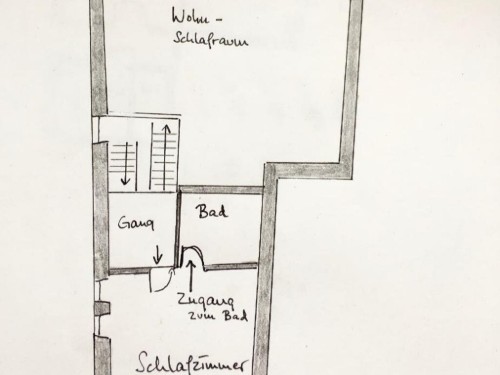 Wohn-
Schlafraum
Gang
Bad
Zugang
zum Bad
Schlafzimmer